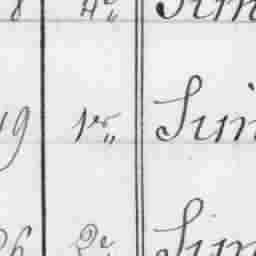 8 4e „ Sim
19 1er „ Sim
26 2e „ Sim